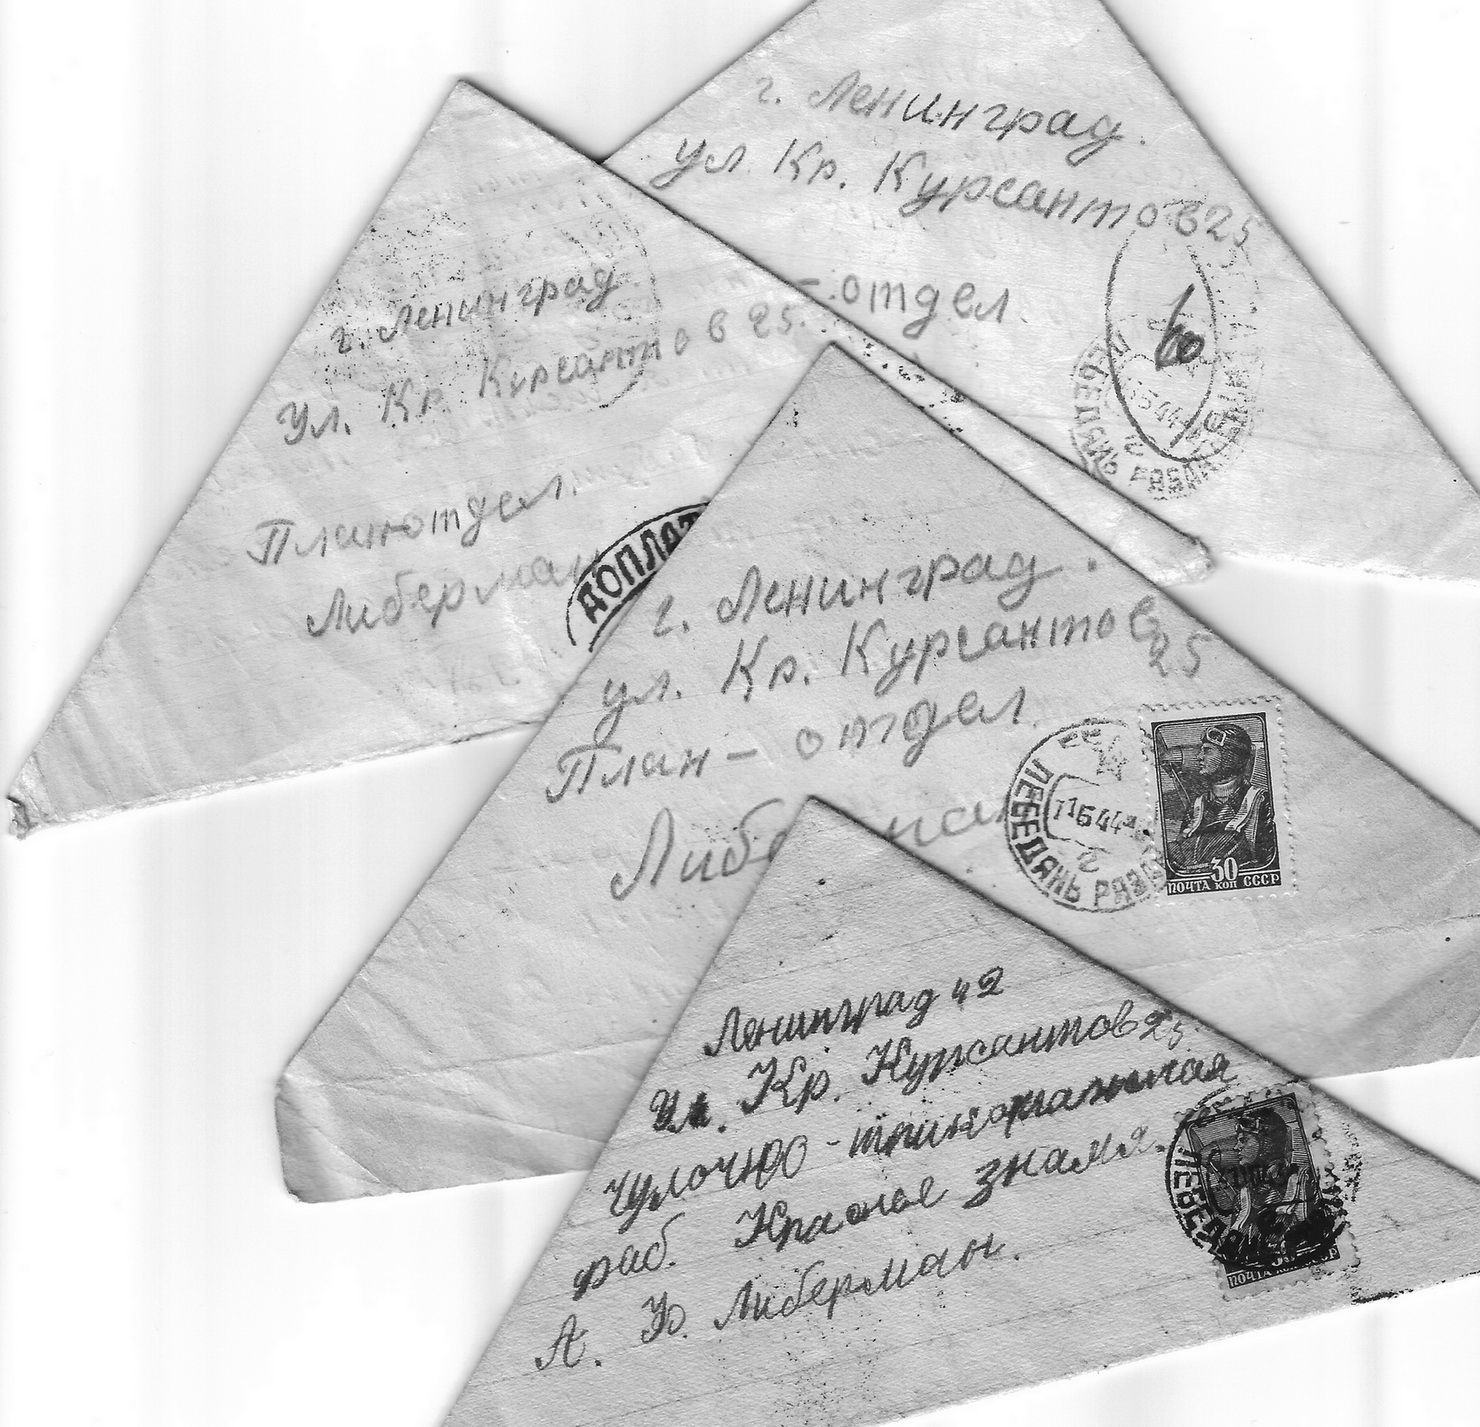 г. Ленинград.
ул. Кр. Курсантов 25
отдел.
ЛЕБЕДЯНЬ
г. Ленинград
Ул. Кр. Курсантов 25.
Планотдел.
Либерман
ДОПЛАТ
г. Ленинград.
ул. Кр. Курсантов
25
План - отдел.
Либе
ЛЕБЕДЯНЬ РЯЗ
11644
30
ПОЧТА КОП СССР
Ленинград 42
Ул. Кр. Курсантов 25.
Чулочно - трикотажная
фаб. Красное знамя.
А. Ю. Либерман.
ЛЕБЕДЯ
ПОЧТА